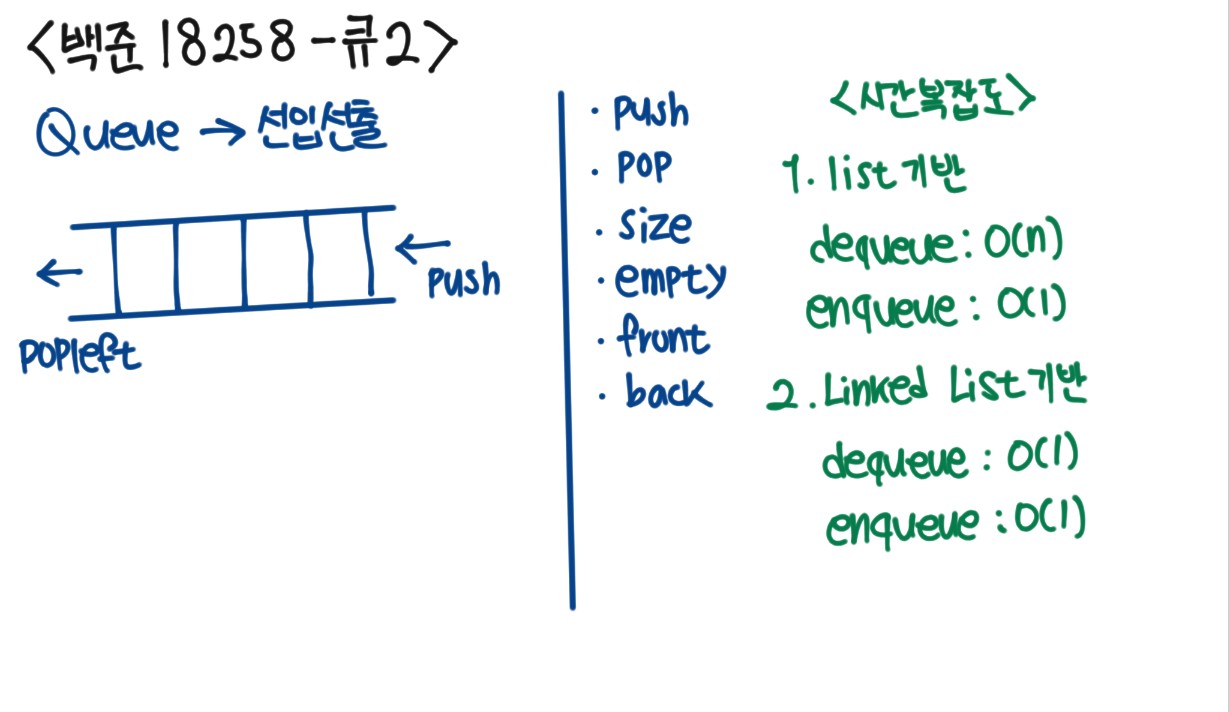 <백준 18258 - 큐2>
Queue → 선입선출
← push
←
popleft
· push
· pop
· size
· empty
· front
· back
<시간복잡도>
1. list 기반
dequeue : O(n)
enqueue : O(1)
2. Linked List 기반
dequeue : O(1)
enqueue : O(1)